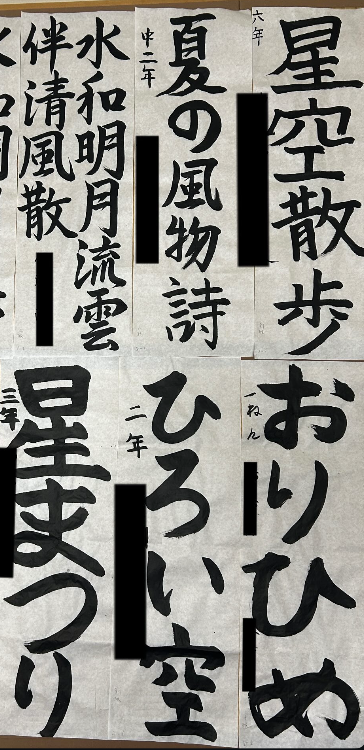 星空散歩
六年
夏の風物詩
中二年
水和明月流雲
伴清風散
おりひめ
一ねん
ひろい空
二年
星まつり
三年